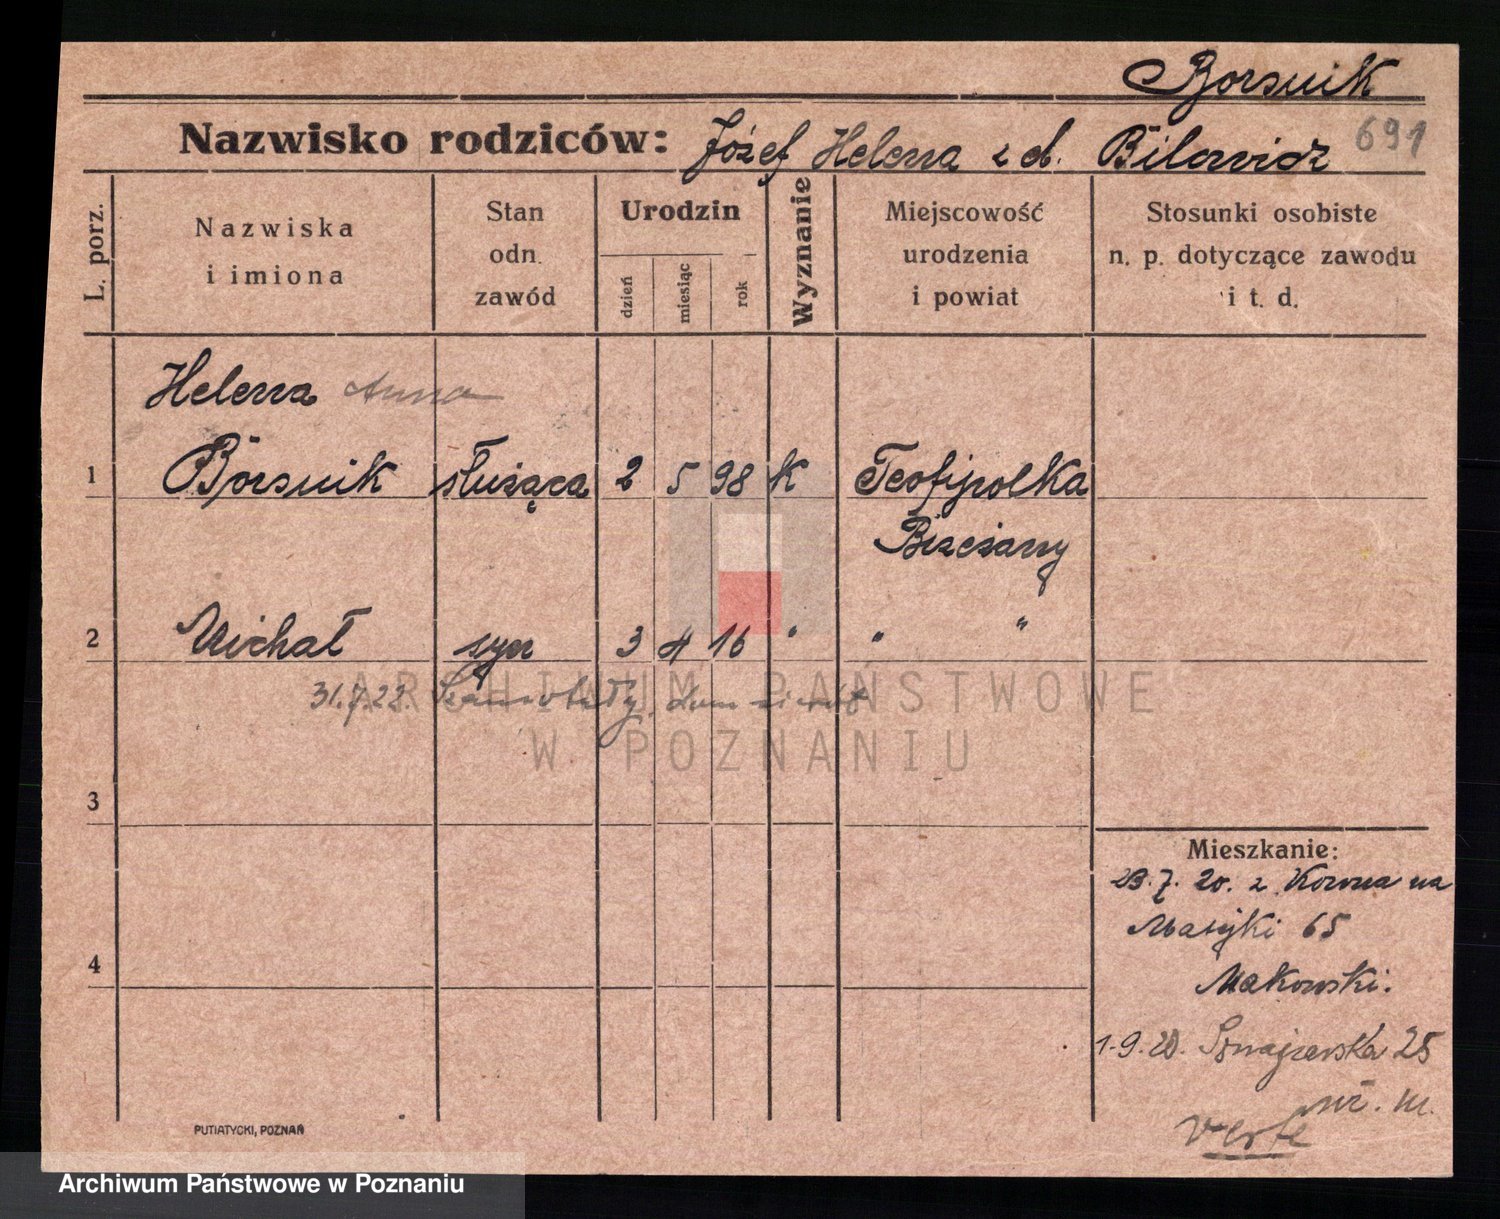 Borsuik
691
Nazwisko rodziców: Józef Helena z d. Bilewicz
L. porz.
Nazwiska
i imiona
Stan
odn.
zawód
Urodzin
dzień
miesiąc
rok
Wyznanie
Miejscowość
urodzenia
i powiat
Stosunki osobiste
n. p. dotyczące zawodu
i t. d.
Helena Anna
1 Borsuik służąca 2 5 98 K Teofipolka
Brzeżany
2 Michał syn 3 4 16 " " "
31.7.22. Szamotuły
3
4
Mieszkanie:
23.7.20. z Kowna na
Matejki 65
Makowski.
1.9.20. 25
verte
PUTIATYCKI, POZNAŃ
ARCHIWUM PAŃSTWOWE
W POZNANIU
Archiwum Państwowe w Poznaniu